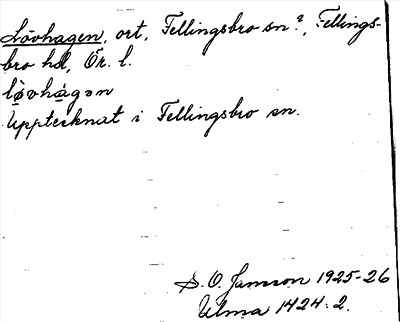 Lövhagen, ort, Fellingsbro sn?, Fellings-
bro hd, Ör. l.
lövhagən
Upptecknat i Fellingsbro sn.
S. O. Jansson 1925-26
Ulma 1424:2.